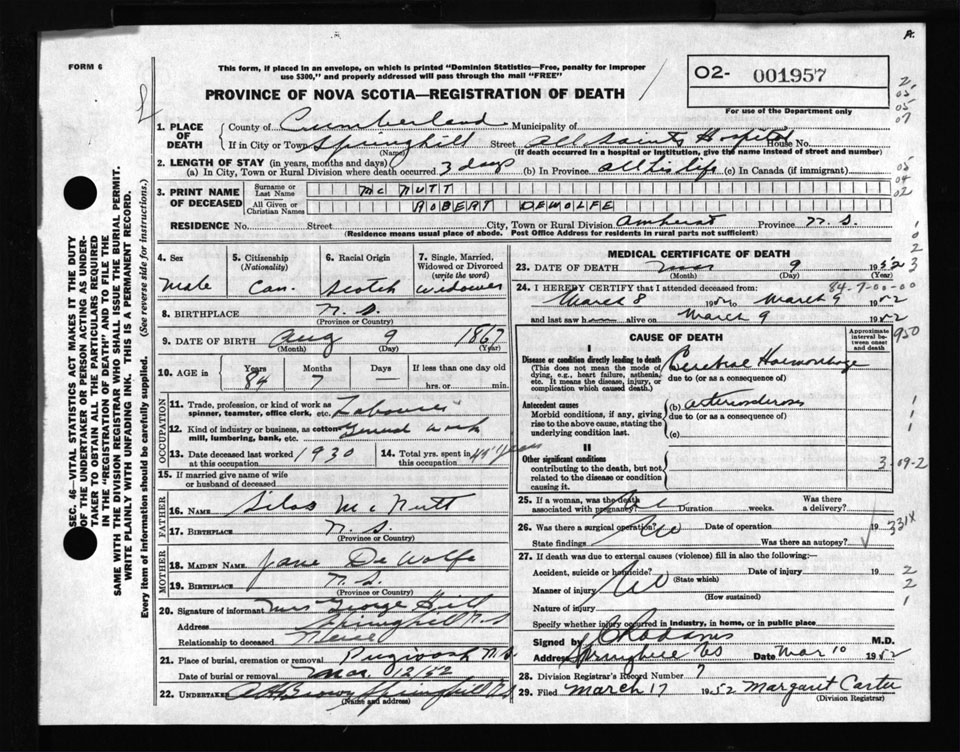 A.
FORM 6
This form, if placed in an envelope, on which is printed "Dominion Statistics—Free, penalty for improper
use $300," and properly addressed will pass through the mail "FREE"
PROVINCE OF NOVA SCOTIA—REGISTRATION OF DEATH
02- 001957
For use of the Department only
2
05
05
07
1. PLACE OF DEATH
County of Cumberland Municipality of
If in City or Town Springhill Street All Saints Hospital House No.
(Name) (If death occurred in a hospital or institution, give the name instead of street and number)
2. LENGTH OF STAY (in years, months and days)
(a) In City, Town or Rural Division where death occurred 3 days (b) In Province all his life (c) In Canada (if immigrant)
05
04
02
3. PRINT NAME OF DECEASED
Surname or Last Name MC NUTT
All Given or Christian Names ROBERT DEWOLFE
RESIDENCE No. Street City, Town or Rural Division Amherst Province N.S.
(Residence means usual place of abode. Post Office Address for residents in rural parts not sufficient)
4. Sex
Male
5. Citizenship
(Nationality)
Can.
6. Racial Origin
Scotch
7. Single, Married, Widowed or Divorced
(write the word)
Widower
8. BIRTHPLACE N.S.
(Province or Country)
9. DATE OF BIRTH Aug 9 1867
(Month) (Day) (Year)
10. AGE in Years Months Days If less than one day old
84 7 — hrs. or min.
OCCUPATION
11. Trade, profession, or kind of work as
spinner, teamster, office clerk, etc. Labourer
12. Kind of industry or business, as cotton
mill, lumbering, bank, etc. General work
13. Date deceased last worked
at this occupation 1930
14. Total yrs. spent in
this occupation 45 years
15. If married give name of wife
or husband of deceased
FATHER
16. NAME Silas McNutt
17. BIRTHPLACE N.S.
(Province or Country)
MOTHER
18. MAIDEN NAME Jane DeWolfe
19. BIRTHPLACE N.S.
(Province or Country)
20. Signature of informant Mrs George Gill
Address Springhill N.S
Relationship to deceased Niece
21. Place of burial, cremation or removal Pugwash N.S.
Date of burial or removal Mar. 12/52
22. UNDERTAKER Brown Springhill N.S
(Name and address)
MEDICAL CERTIFICATE OF DEATH
23. DATE OF DEATH Mar 9 1952
24. I HEREBY CERTIFY that I attended deceased from: 84-7-00-00
March 8 1952 to March 9 1952
and last saw h alive on March 9 1952
CAUSE OF DEATH
Approximate interval between onset and death
950
I
Disease or condition directly leading to death
(This does not mean the mode of
dying, e.g., heart failure, asthenia,
etc. It means the disease, injury, or
complication which caused death.)
Cerebral Haemorrhage
due to (or as a consequence of)
Antecedent causes
Morbid conditions, if any, giving
rise to the above cause, stating the
underlying condition last.
(b) arteriosclerosis
due to (or as a consequence of)
(c)
II
Other significant conditions
contributing to the death, but not
related to the disease or condition
causing it.
3-09-2
25. If a woman, was the death
associated with pregnancy? Duration weeks. Was there
a delivery?
26. Was there a surgical operation? No Date of operation 19
State findings Was there an autopsy?
331X
27. If death was due to external causes (violence) fill in also the following:—
Accident, suicide or homicide? Date of injury 19
(State which)
Manner of injury No
(How sustained)
Nature of injury
Specify whether injury occurred in industry, in home, or in public place
Signed by M.D.
Address Springhill NS Date Mar 10 1952
28. Division Registrar's Record Number 7
29. Filed March 17 1952 Margaret Carter
(Division Registrar)
SEC. 46—VITAL STATISTICS ACT MAKES IT THE DUTY
OF THE UNDERTAKER OR PERSON ACTING AS UNDER-
TAKER TO OBTAIN ALL THE PARTICULARS REQUIRED
IN THE "REGISTRATION OF DEATH" AND TO FILE THE
SAME WITH THE DIVISION REGISTRAR WHO SHALL ISSUE THE BURIAL PERMIT.
WRITE PLAINLY WITH UNFADING INK. THIS IS A PERMANENT RECORD.
Every item of information should be carefully supplied. (See reverse side for instructions.)